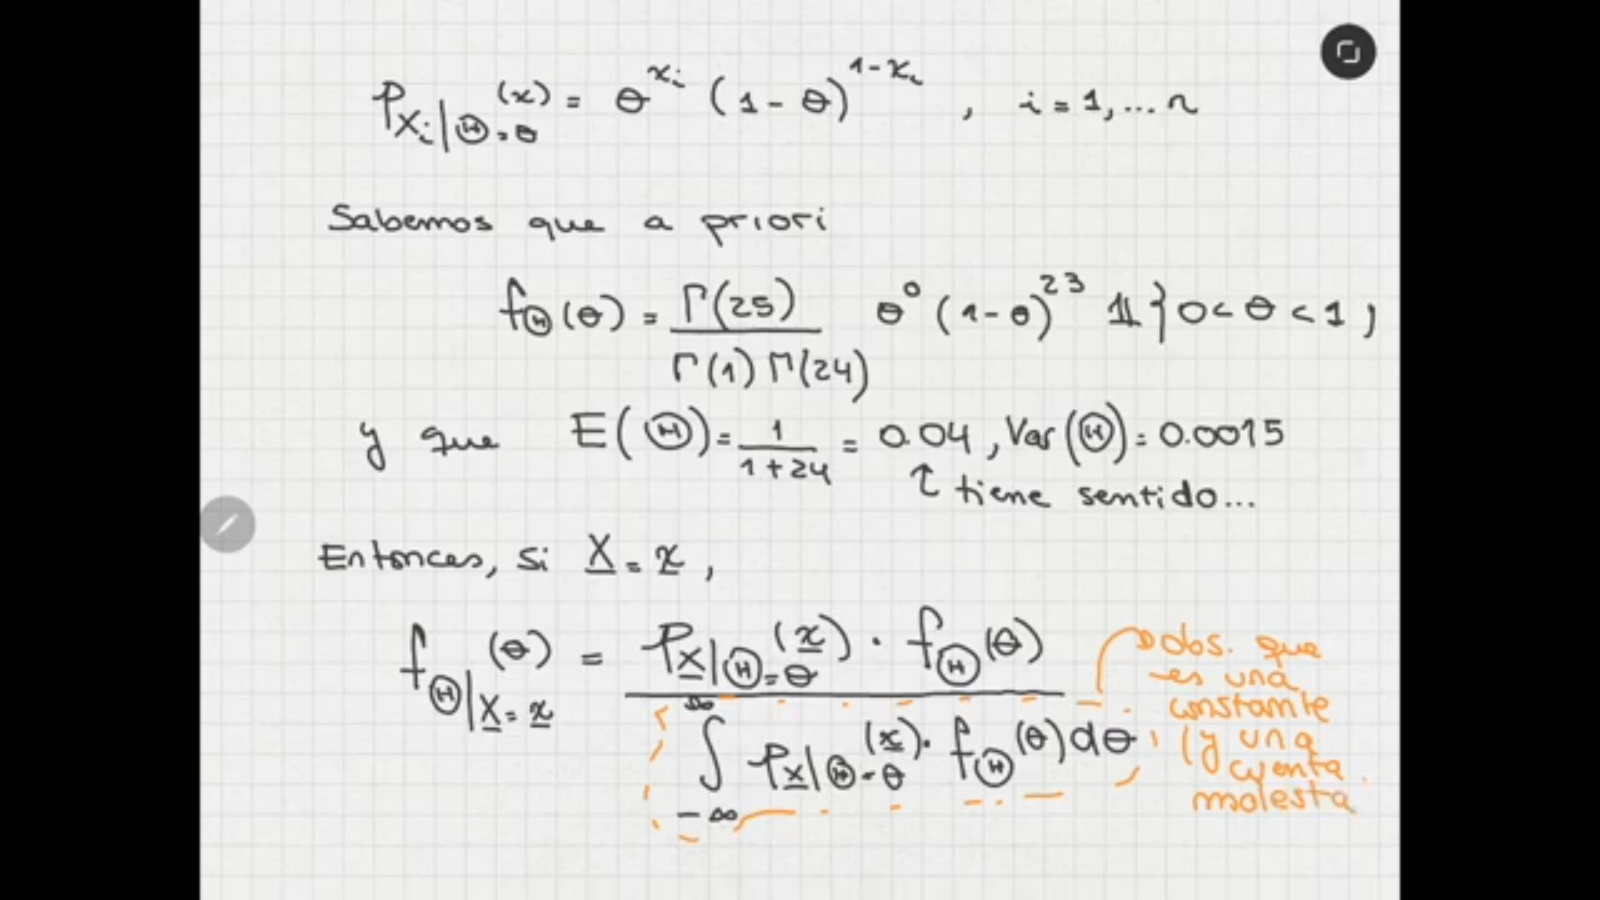 p_{X_i|Θ=θ}(x) = θ^{x_i} (1-θ)^{1-x_i} , i = 1, ... n
Sabemos que a priori
f_Θ(θ) = Γ(25) / Γ(1) Γ(24) θ^0 (1-θ)^{23} 𝟙{0<θ<1,
y que E(Θ) = 1/(1+24) = 0.04 , Var(Θ) = 0.0015
↑ tiene sentido...
Entonces, si X = x ,
f_{Θ|X=x}(θ) = p_{X|Θ=θ}(x) · f_Θ(θ) / ∫_{-∞}^{∞} p_{X|Θ=θ}(x) · f_Θ(θ) dθ
obs. que
es una
constante
(y una
cuenta
molesta